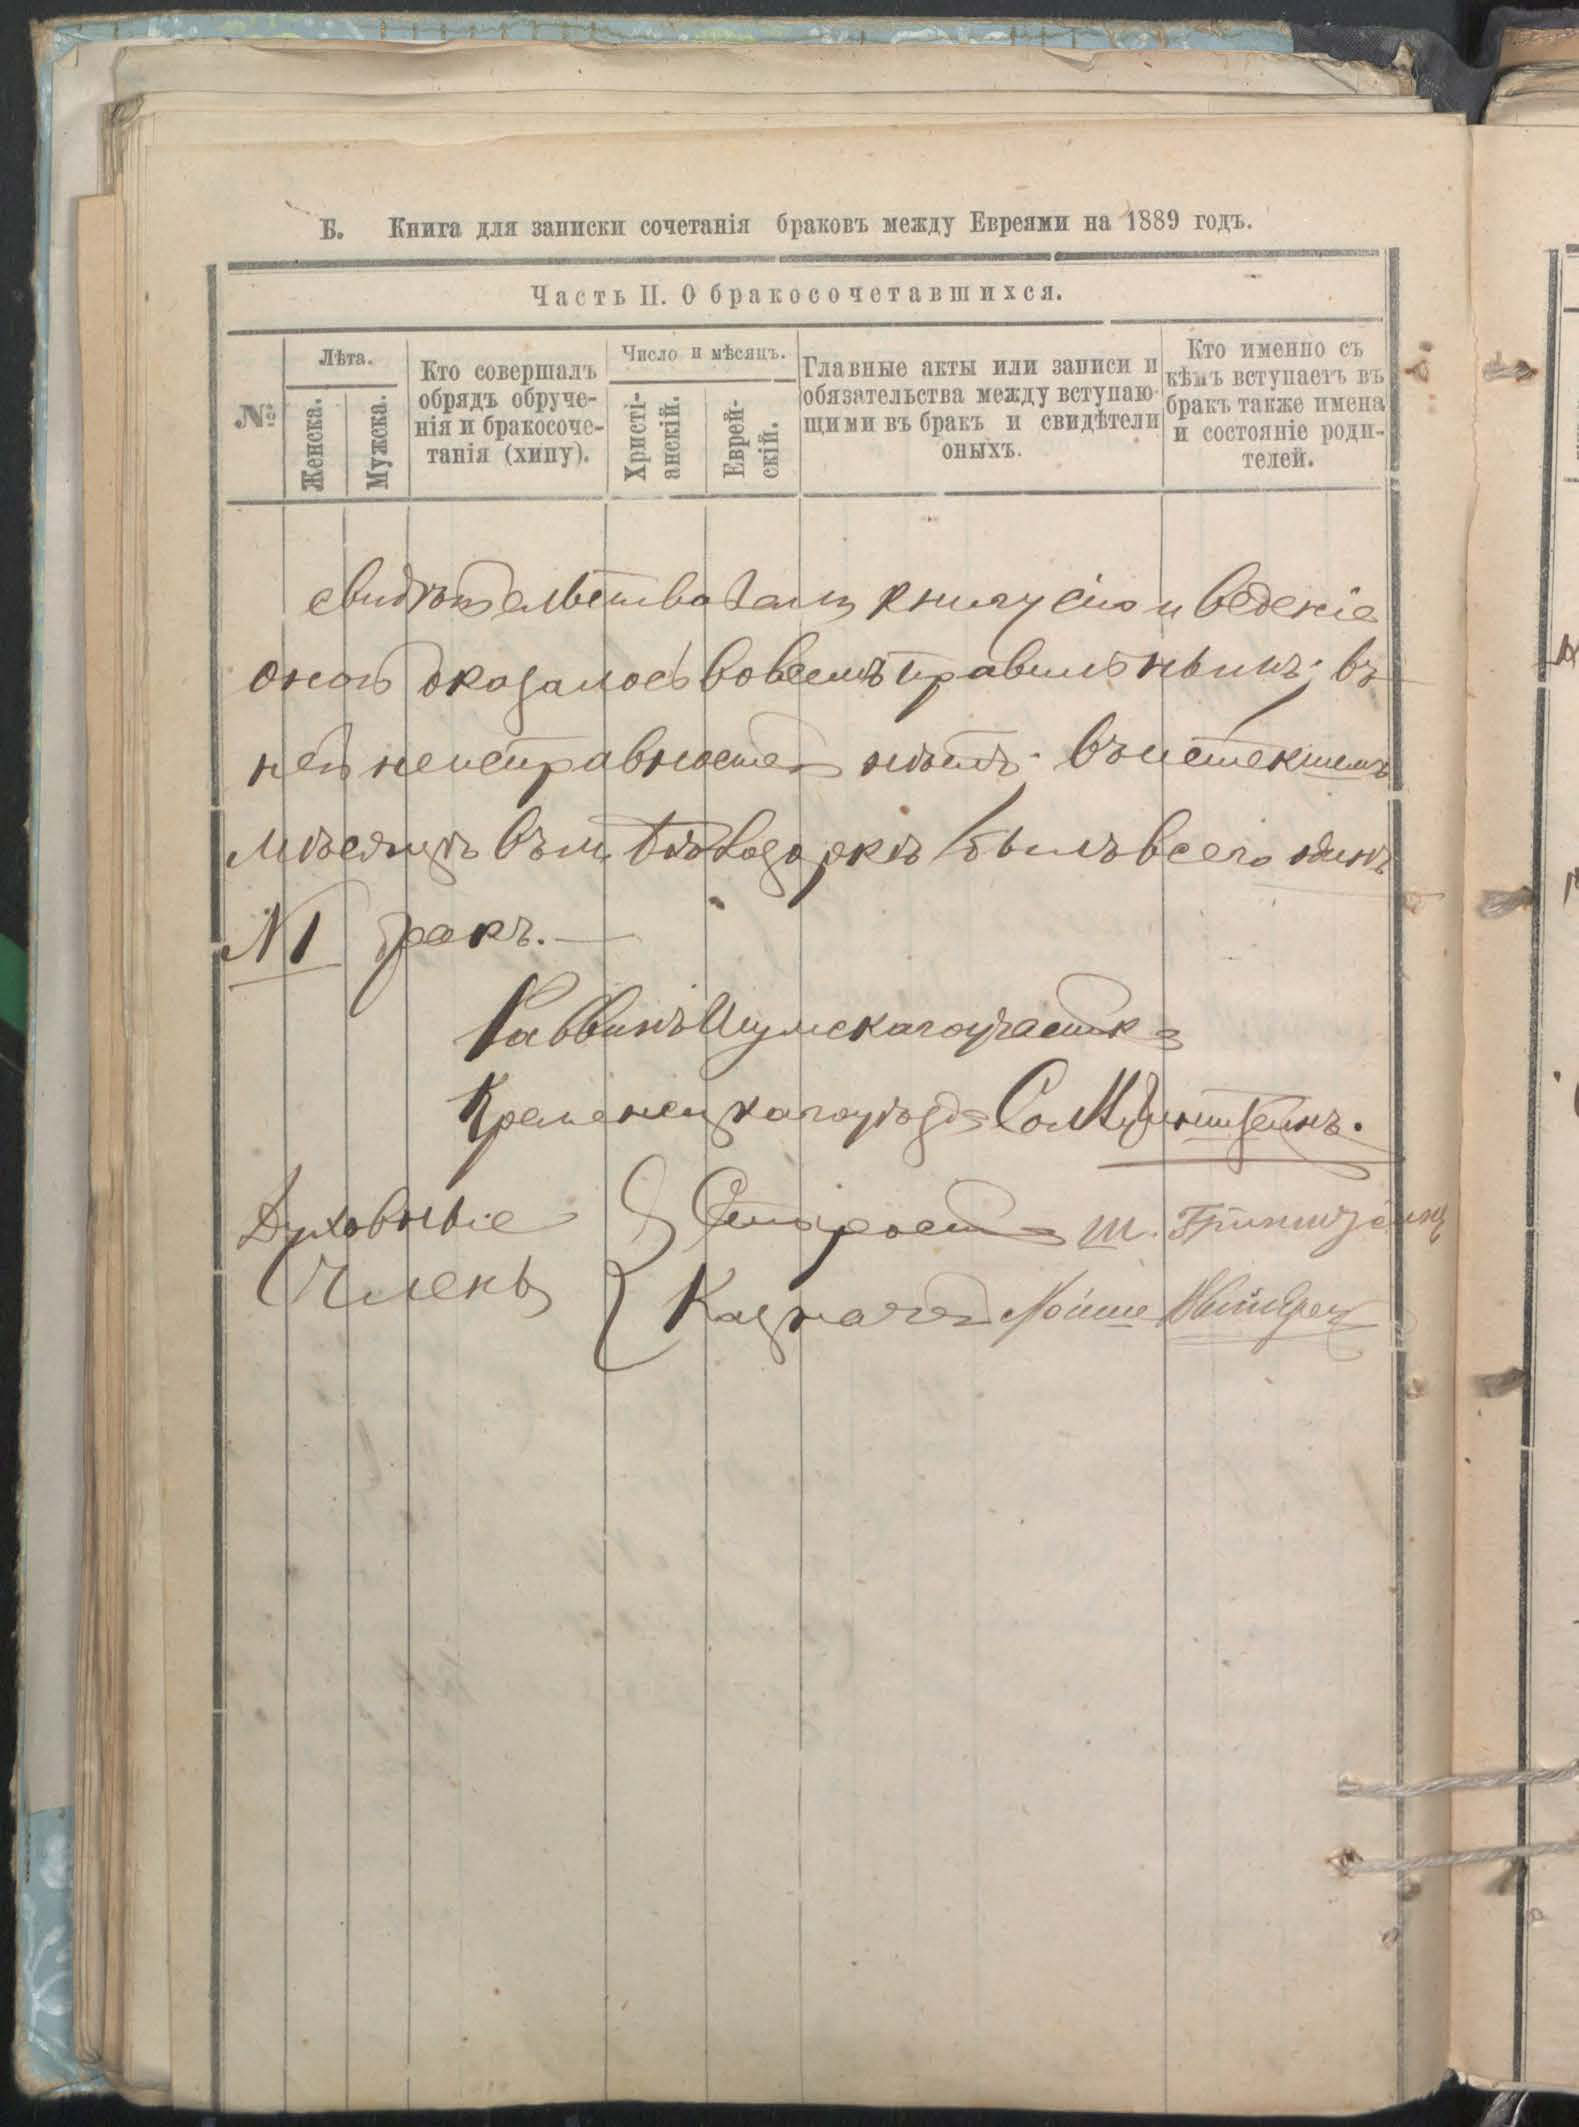 Б. Книга для записки сочетанія браковъ между Евреями на 1889 годъ.
Часть II. О бракосочетавшихся.
№
Лѣта.
Женска.
Мужска.
Кто совершалъ
обрядъ обруче-
нія и бракосоче-
танія (хипу).
Число и мѣсяцъ.
Христі-
анскій.
Еврей-
скій.
Главные акты или записи и
обязательства между вступаю-
щими въ бракъ и свидѣтели
оныхъ.
Кто именно съ
кѣмъ вступаетъ въ
бракъ также имена
и состояніе роди-
телей.
свидѣтельствовали книгу сію и веденіе
оной оказалось вовсемъ правильнымъ; въ
ней неисправностей нѣтъ. Въ истекшемъ
мѣсяцѣ въ м. былъ всего одинъ
№ 1 бракъ. —
Раввинъ Шумскаго участка
Кременецкаго уѣзда
Духовные
члены
Староста Ш.
Казначей Мойше